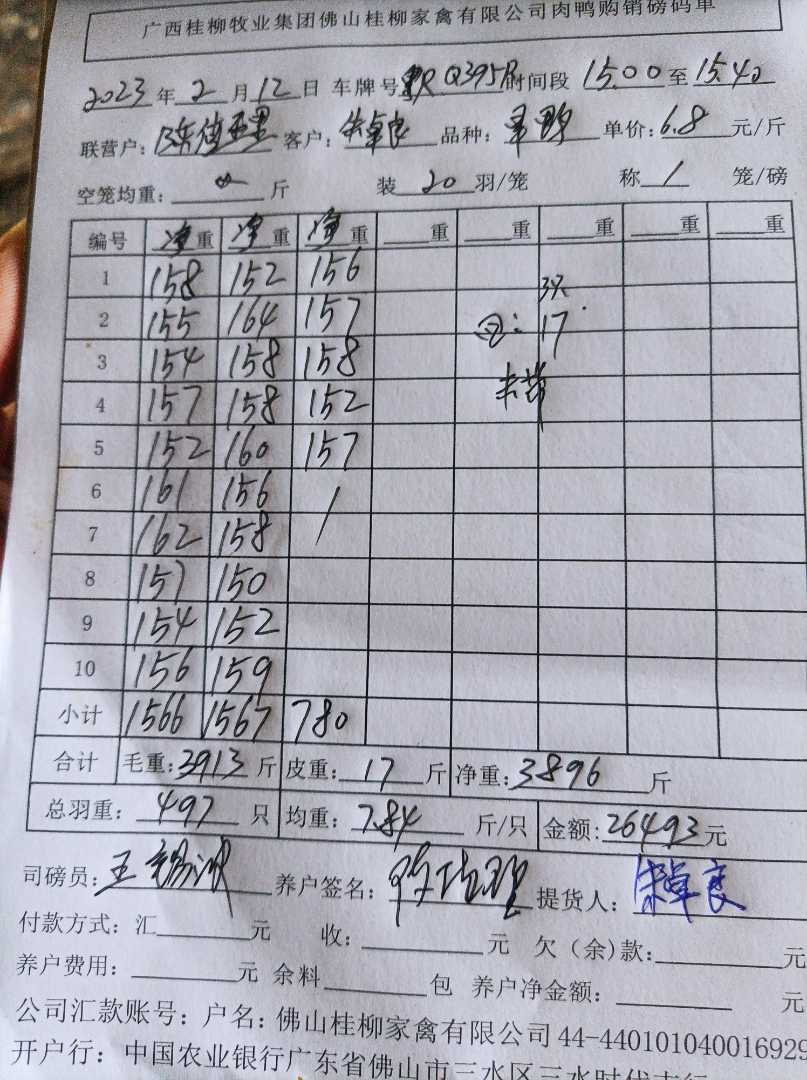 广西桂柳牧业集团佛山桂柳家禽有限公司肉鸭购销磅码单
2023 年 2 月 12 日 车牌号 Q395R 时间段 15.00 至 15.42
联营户: 客户: 朱卓良 品种: 单价: 6.8 元/斤
空笼均重: 斤 装 20 羽/笼 称 1 笼/磅
编号 净重 净重 净重 重 重 重 重 重
1 158 152 156
3只
2 155 164 157 回: 17
3 154 158 158
4 157 158 152
5 152 160 157
6 161 156 /
7 162 158
8 157 150
9 154 152
10 156 159
小计 1566 1567 780
合计 毛重: 3913 斤 皮重: 17 斤 净重: 3896 斤
总羽重: 497 只 均重: 7.84 斤/只 金额: 26493 元
司磅员: 王 养户签名: 提货人: 朱卓良
付款方式: 汇 元 收: 元 欠（余）款: 元
养户费用: 元 余料 包 养户净金额: 元
公司汇款账号: 户名: 佛山桂柳家禽有限公司 44-440101040016929
开户行: 中国农业银行广东省佛山市三水区三水时代支行